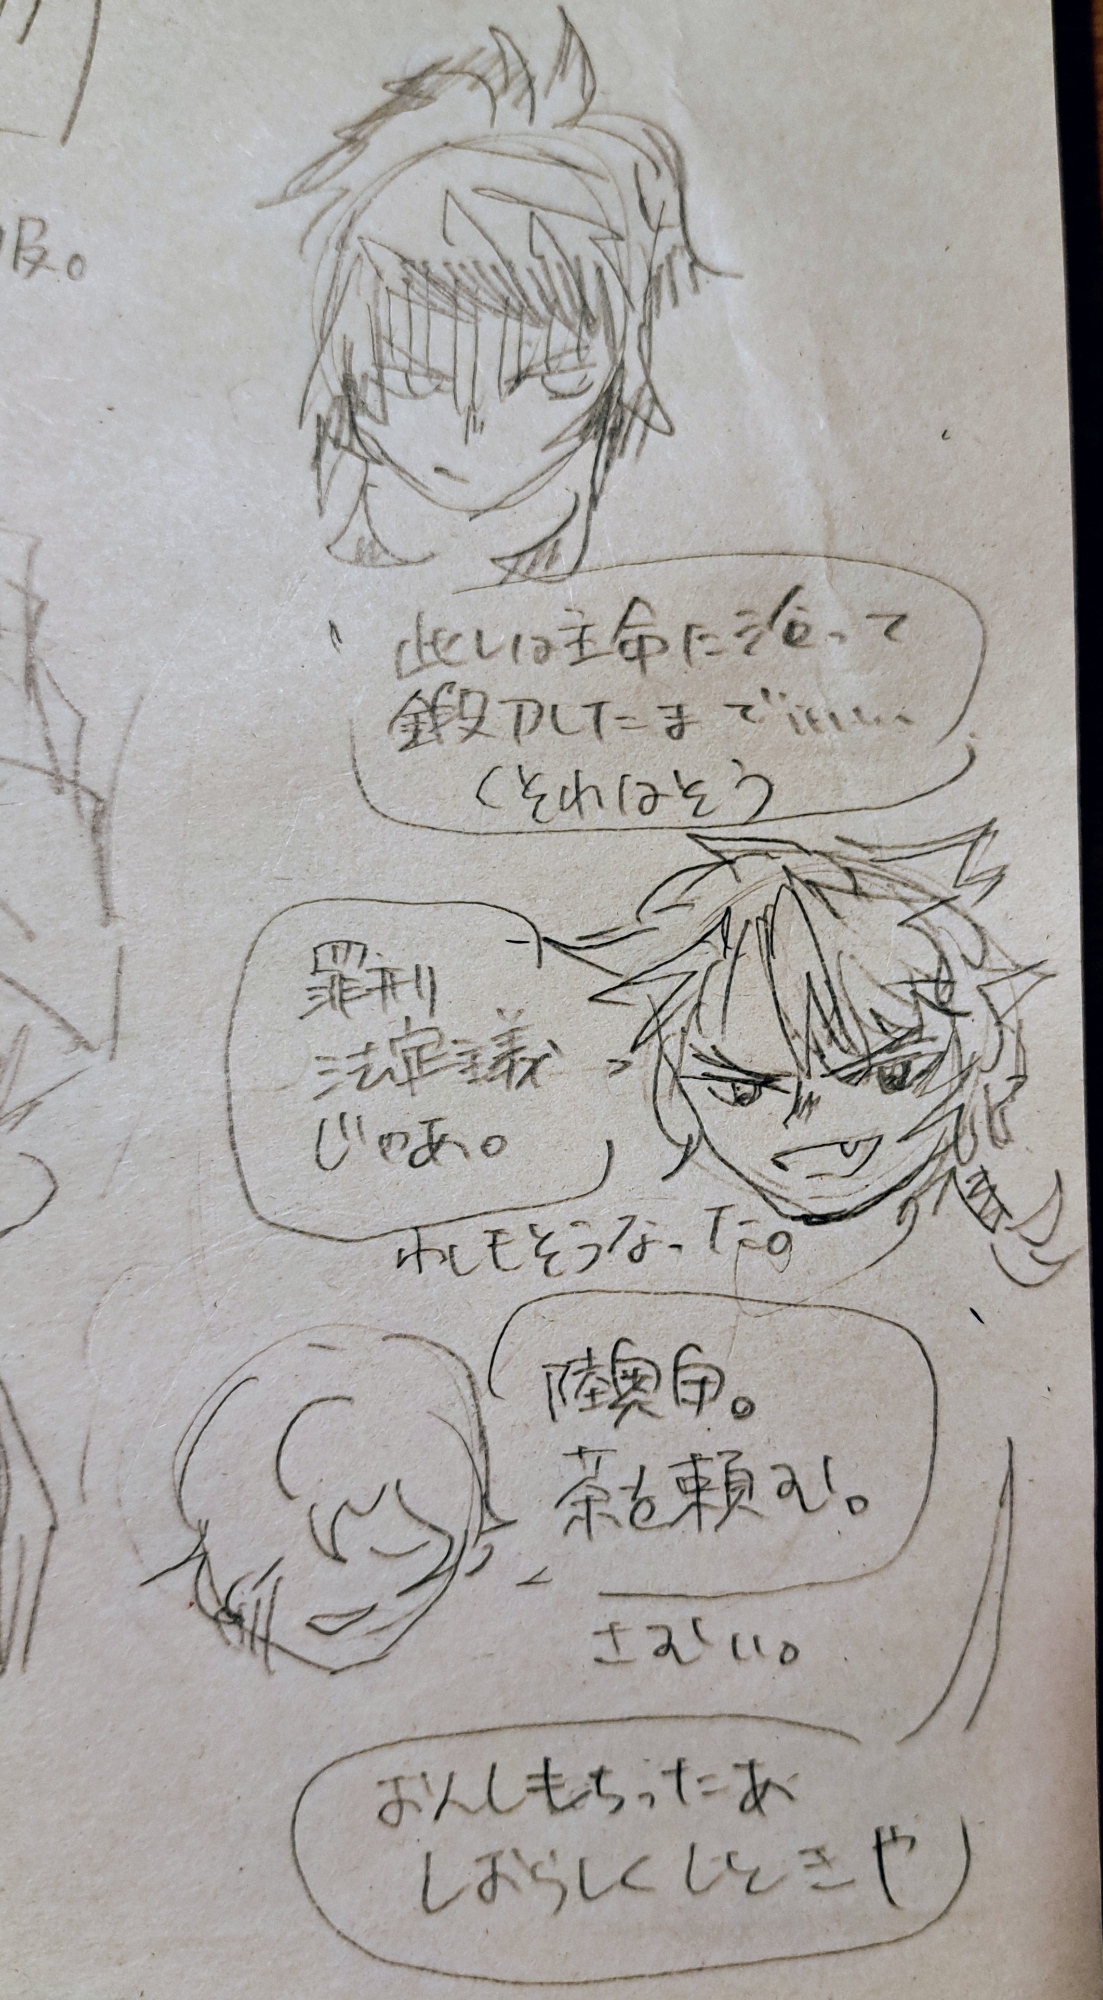 此しは主命に沿って
鍛刀したまで
くそれはそう
罪刑
法定主義
じゃあ。
わしもそうなった。
陸奥守。
茶を頼む。
さむい。
おんしもちったあ
しおらしくしときや